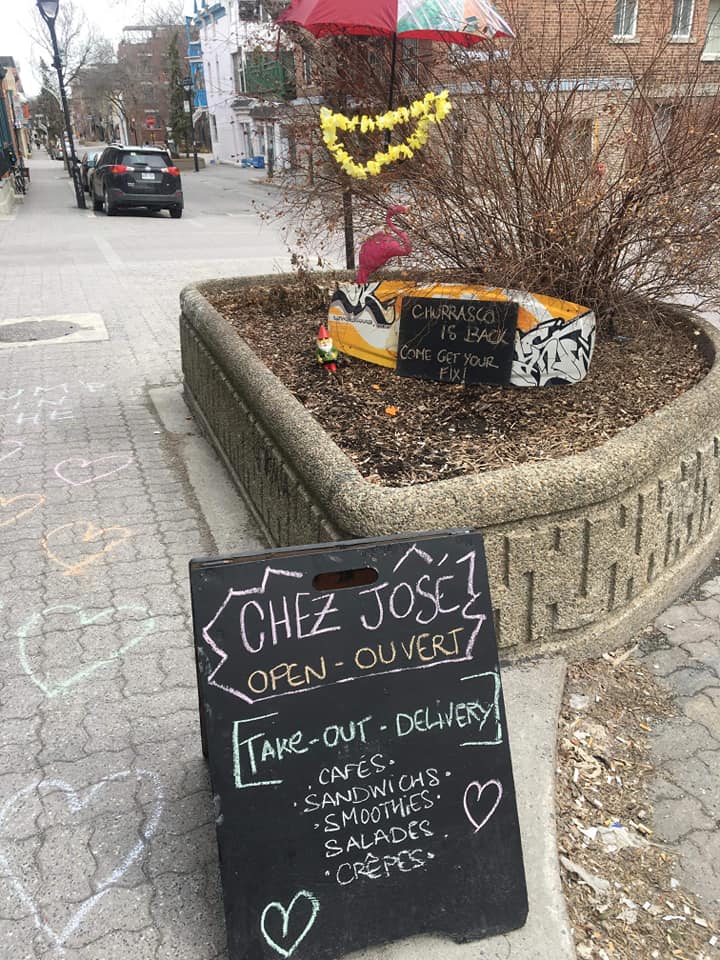 CHURRASCO
IS BACK
COME GET YOUR
FIX!
CHEZ JOSÉ
OPEN - OUVERT
TAKE-OUT - DELIVERY
CAFÉS.
· SANDWICHS ·
· SMOOTHIES ·
SALADES
· CRÊPES ·